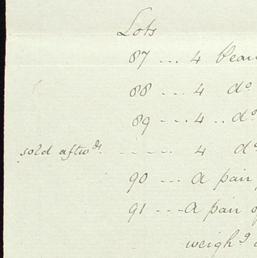 Lots
87 ... 4 beau
88 ... 4 do
89 ... 4 .. do
sold aftwds. ----- 4 do
90 --- A pair
91 --- A pair of
weighg